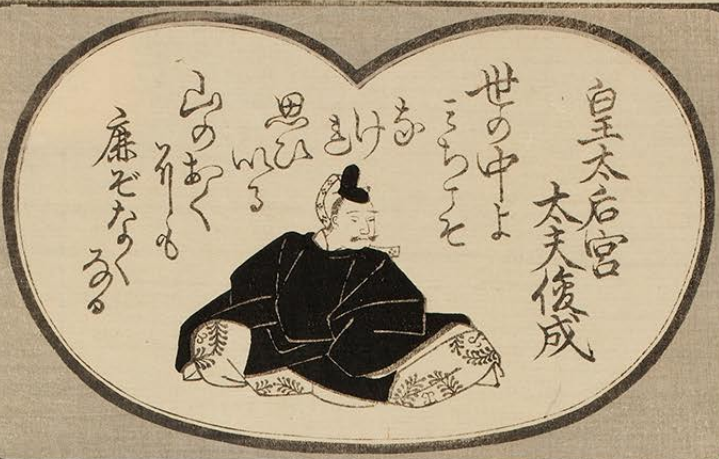 皇太后宮
太夫俊成
世の中よ
みちこそ
な
けれ
思ひ
いる
山のおく
にも
鹿ぞなく
なる